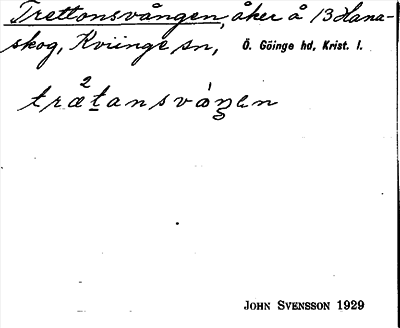 Trettonsvången, åker å 13 Hana-
skog, Kviinge sn, Ö. Göinge hd, Krist. l.
træ²t̲ansvåŋen
JOHN SVENSSON 1929